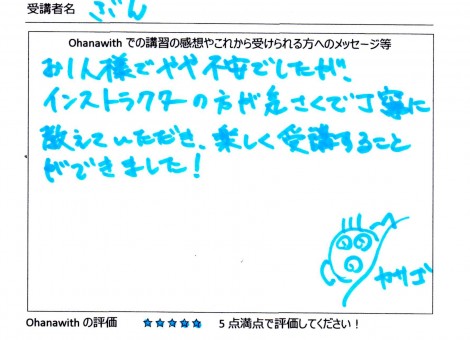 受講者名 ぶん
Ohanawith での講習の感想やこれから受けられる方へのメッセージ等
お1人様でやや不安でしたが、
インストラクターの方が気さくで丁寧に
教えていただき、楽しく受講すること
ができました！
カサゴ
Ohanawith の評価 ★★★★★ 5 点満点で評価してください！